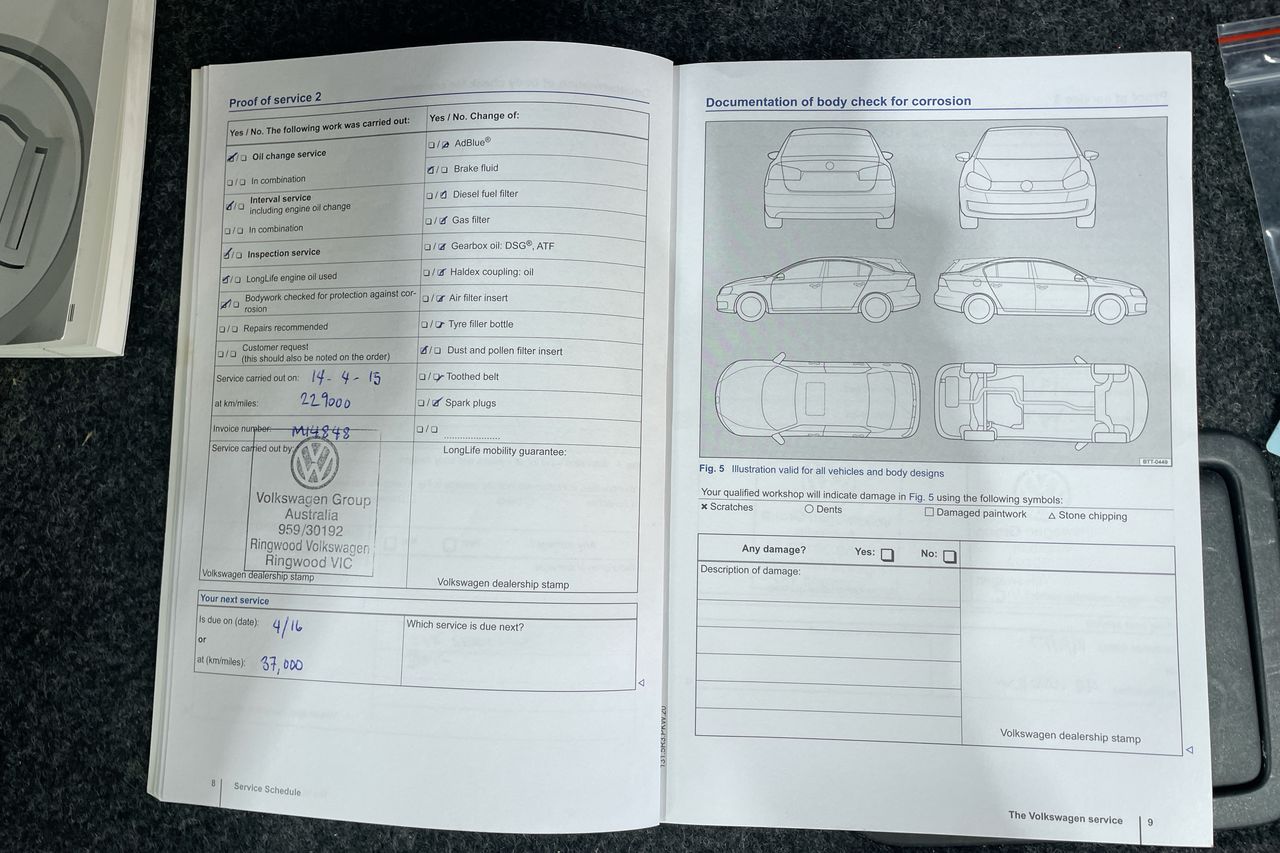 Proof of service 2
Yes / No. The following work was carried out:
Oil change service
In combination
Interval service
including engine oil change
In combination
Inspection service
LongLife engine oil used
Bodywork checked for protection against cor-
rosion
Repairs recommended
Customer request
(this should also be noted on the order)
Service carried out on: 14 - 4 - 15
at km/miles: 229000
Invoice number: M14848
Service carried out by:
Volkswagen Group
Australia
959/30192
Ringwood Volkswagen
Ringwood VIC
Volkswagen dealership stamp
Yes / No. Change of:
AdBlue®
Brake fluid
Diesel fuel filter
Gas filter
Gearbox oil: DSG®, ATF
Haldex coupling: oil
Air filter insert
Tyre filler bottle
Dust and pollen filter insert
Toothed belt
Spark plugs
LongLife mobility guarantee:
Volkswagen dealership stamp
Your next service
Is due on (date): 4/16
or
at (km/miles): 37,000
Which service is due next?
8 Service Schedule
Documentation of body check for corrosion
BTT-0449
Fig. 5 Illustration valid for all vehicles and body designs
Your qualified workshop will indicate damage in Fig. 5 using the following symbols:
× Scratches ○ Dents □ Damaged paintwork △ Stone chipping
Any damage? Yes: □ No: □
Description of damage:
Volkswagen dealership stamp
The Volkswagen service 9